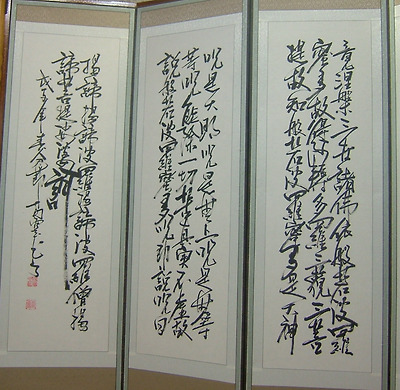 竟涅槃三世諸佛依般若波羅
蜜多故得阿耨多羅三藐三菩
提故知般若波羅蜜多是大神
呪是大明呪是無上呪是無等
等呪能除一切苦真實不虛故
說般若波羅蜜多呪即說呪曰
揭諦揭諦波羅揭諦波羅僧揭
諦菩提娑婆訶
戊子年春分節